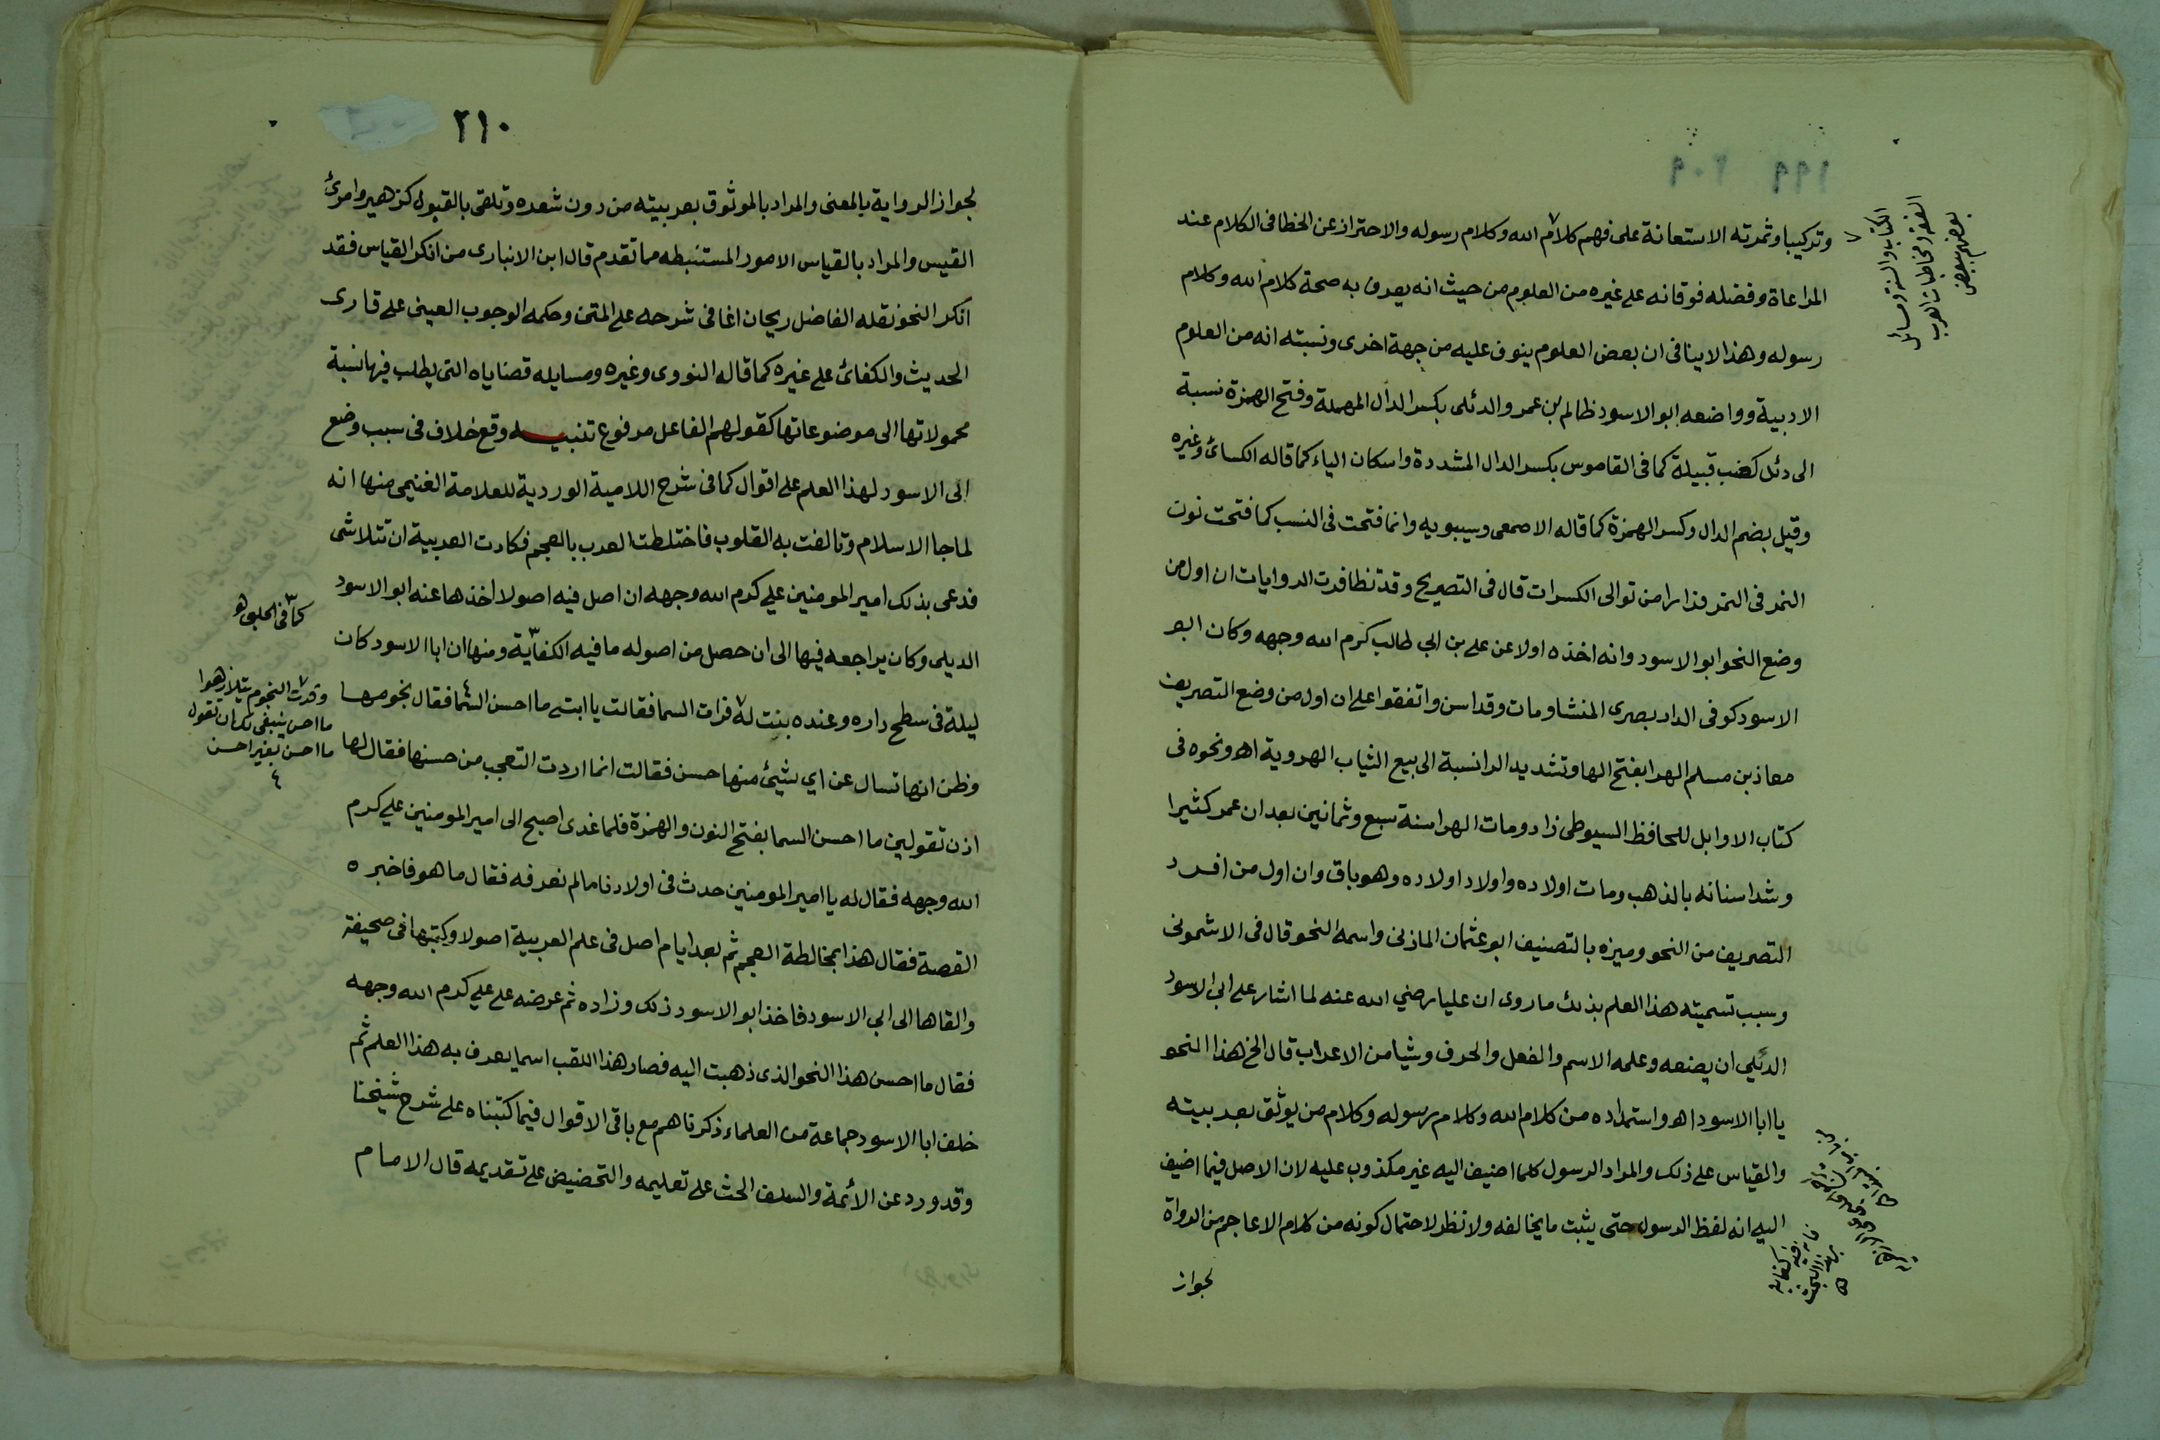 ١٩٩ ٢٠٩
وتركيبا وثمرته الاستعانة على فهم كلام الله وكلام رسوله والاحتراز عن الخطا فى الكلام عند
المراعاة وفضله فوقانه على غيره من العلوم من حيث انه يعرف به صحة كلام الله وكلام
رسوله وهذا لا ينافى ان بعض العلوم ينوف عليه من جهة اخرى ونسبته انه من العلوم
الادبية وواضعه ابو الاسود ظالم بن عمرو الدئلى بكسر الدال المهملة وفتح الهمزة نسبة
الى دئل كعنب قبيلة كما فى القاموس بكسر الدال المشددة واسكان الياء كما قاله الكسائ وغيره
وقيل بضم الدال وكسر الهمزة كما قاله الاصمعى وسيبويه وانما فتحت فى النسب كما فتحت نون
النمر فى النمر فذارا من توالى الكسرات قال فى التصريح وقد تظافرت الروايات ان اول من
وضع النحو ابو الاسود وانه اخذه اولا عن على بن ابي طالب كرم الله وجهه وكان ابو
الاسود كوفى الدار بصرى المنشا ومات وقد اسن واتفقوا على ان اول من وضع التصريف
معاذ بن مسلم الهرا بفتح الها وتشديد الرا نسبة الى بيع الثياب الهروية اهـ ونحوه فى
كتاب الاوايل للحافظ السيوطى زاد ومات الهرا سنة سبع وثمانين بعد ان عمر كثيرا
وشد اسنانه بالذهب ومات اولاده واولاد اولاده وهو باق وان اول من افرد
التصريف من النحو وميزه بالتصنيف ابو عثمان المازنى واسمه النحو قال فى الاشمونى
وسبب تسميته هذا العلم بذلك ما روى ان عليا رضي الله عنه لما اشار على ابي الاسود
الدئلي ان يضعه وعلمه الاسم والفعل والحرف وشيا من الاعراب قال الخ هذا النحو
يا ابا الاسود اهـ واستمداده من كلام الله وكلام رسوله وكلام من يوثق بعربيته
والقياس على ذلك والمراد الرسول كلما اضيف اليه غير مكذوب عليه لان الاصل فيما اضيف
اليه انه لفظ الرسول حتى يثبت ما يخالفه ولا نظر لاحتمال كونه من كلام الاعاجم من الرواة
لجواز
الكتاب والسنة ومسائل
الفقه ومخاطبات العرب
بعضهم ببعض
٢١٠
لجواز الرواية بالمعنى والمراد بالموثوق بعربيته من دون شعره وتلقى بالقبول كزهير وامرئ
القيس والمراد بالقياس الامور المستنبطه مما تقدم قال ابن الانبارى من انكر القياس فقد
انكر النحو نقله الفاضل ريحان اغا فى شرحه على المتن وحكمه الوجوب العينى على قارى
الحديث والكفائ على غيره كما قاله النووى وغيره ومسايله قضاياه التى يطلب فيها نسبة
محمولاتها الى موضوعاتها كقولهم الفاعل مرفوع تنبيه وقع خلاف فى سبب وضع
ابى الاسود لهذا العلم على اقوال كما فى شرح اللامية الوردية للعلامة الغنيمى منها انه
لما جا الاسلام وتالفت به القلوب فاختلطت العرب بالعجم فكادت العربية ان تتلاشى
فدعى بذلك امير المومنين علي كرم الله وجهه ان اصل فيه اصولا اخذها عنه ابو الاسود
الديلى وكان يراجعه فيها الى ان حصل من اصوله ما فيه الكفاية ومنها ان ابا الاسود كان
ليلة فى سطح داره وعنده بنت له فرات السما فقالت يا ابت ما احسن السما فقال نجومها
وظن انها تسال عن اي شيئ منها حسن فقالت انما اردت التعجب من حسنها فقال لها
اذن تقولين ما احسن السما بفتح النون والهمزة فلما غدى اصبح الى امير المومنين علي كرم
الله وجهه فقال له يا امير المومنين حدث فى اولادنا ما لم نعرفه فقال ما هو فاخبره
القصة فقال هذا بمخالطة العجم ثم بعد ايام اصل فى علم العربية اصولا وكتبها فى صحيفة
والقاها الى ابي الاسود فاخذ ابو الاسود ذلك وزاده ثم عرضه على علي كرم الله وجهه
فقال ما احسن هذا النحو الذى ذهبت اليه فصار هذا اللقب اسما يعرف به هذا العلم ثم
خلف ابا الاسود جماعة من العلماء ذكرناهم مع باقى الاقوال فيما كتبناه على شرح شيخنا
وقد ورد عن الأئمة والسلف الحث على تعليمه والتحضيض على تقديمه قال الامام
كما فى الحلبى
وقدرت النجوم
ما احسن ينبغى لك ان تقول
ما احسن بغير احسن